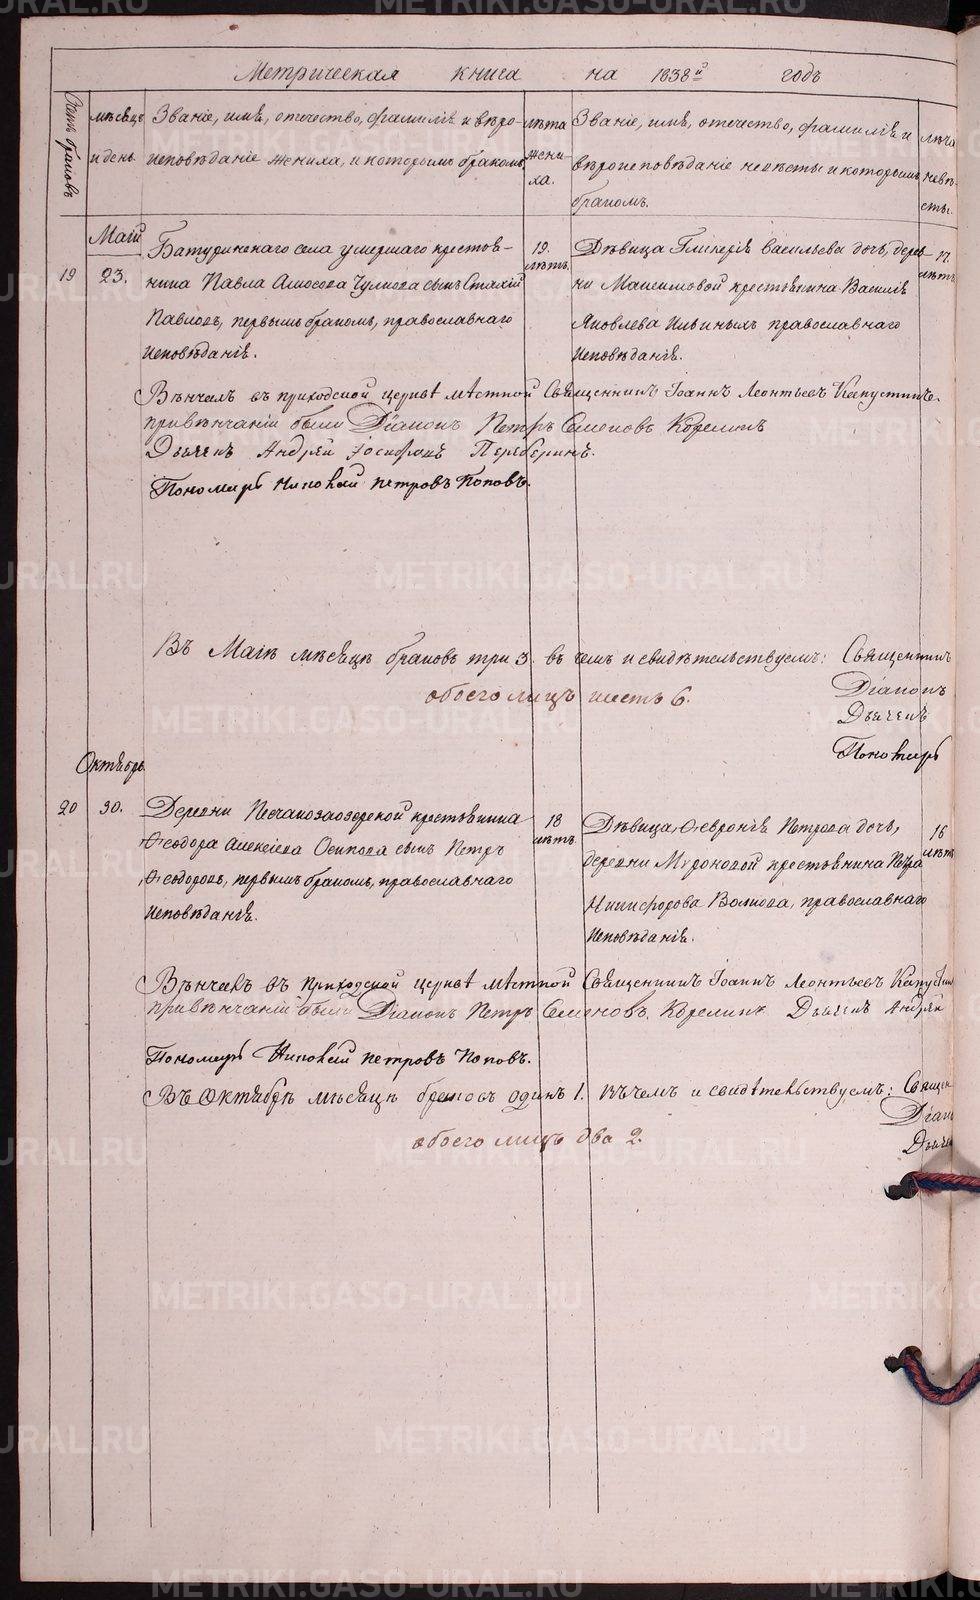 Метрическая книга на 1838й годъ
Счетъ браковъ
мѣсяцъ и день
Званіе, имя, отечество, фамилія и вѣро-
исповѣданіе жениха, и которымъ бракомъ.
лѣта
жени-
ха.
Званіе, имя, отечество, фамилія и
вѣроисповѣданіе невѣсты и которымъ
бракомъ.
лѣта
невѣ-
сты.
Маій
19
23.
Батуринскаго села умершаго крестья-
нина Павла Амосова Чулкова сынъ Стахій
Павловъ, первымъ бракомъ, православнаго
исповѣданія.
19.
лѣтъ.
Дѣвица Гликерія Васильева дочь, дерев-
ни Максимовой крестьянина Василія
Яковлева Ильиныхъ православнаго
исповѣданія.
17.
лѣтъ.
Вѣнчалъ въ приходской церкви мѣстной Священникъ Іоаннъ Леонтьевъ Капустинъ.
при вѣнчаніи были Діаконъ Петръ Семеновъ Корелинъ
Дьячекъ Андрей Іосифовъ
Пономарь Николай Петровъ Поповъ.
Въ Маіѣ мѣсяцѣ браковъ три 3. въ чемъ и свидѣтельствуемъ: Священникъ
обоего лицъ шесть 6.
Діаконъ
Дьячекъ
Пономарь
Октябрь
20
30.
Деревни Песчанозаозерской крестьянина
Ѳеодора Алексіева Осипова сынъ Петръ
Ѳеодоровъ, первымъ бракомъ, православнаго
исповѣданія.
18
лѣтъ.
Дѣвица Ѳевронія Петрова дочь,
деревни Мироновой крестьянина Петра
Никифорова Волкова, православнаго
исповѣданія.
16
лѣтъ
Вѣнчалъ въ приходской церкви мѣстной Священникъ Іоаннъ Леонтьевъ Капустин
при вѣнчаніи были Діаконъ Петръ Семеновъ Корелинъ Дьячекъ Андрей
Пономарь Николай Петровъ Поповъ.
Въ Октябрѣ мѣсяцѣ браковъ одинъ 1. въ чемъ и свидѣтельствуемъ: Священ
обоего лицъ два 2.
Діак
Дьячек
METRIKI.GASO-URAL.RU